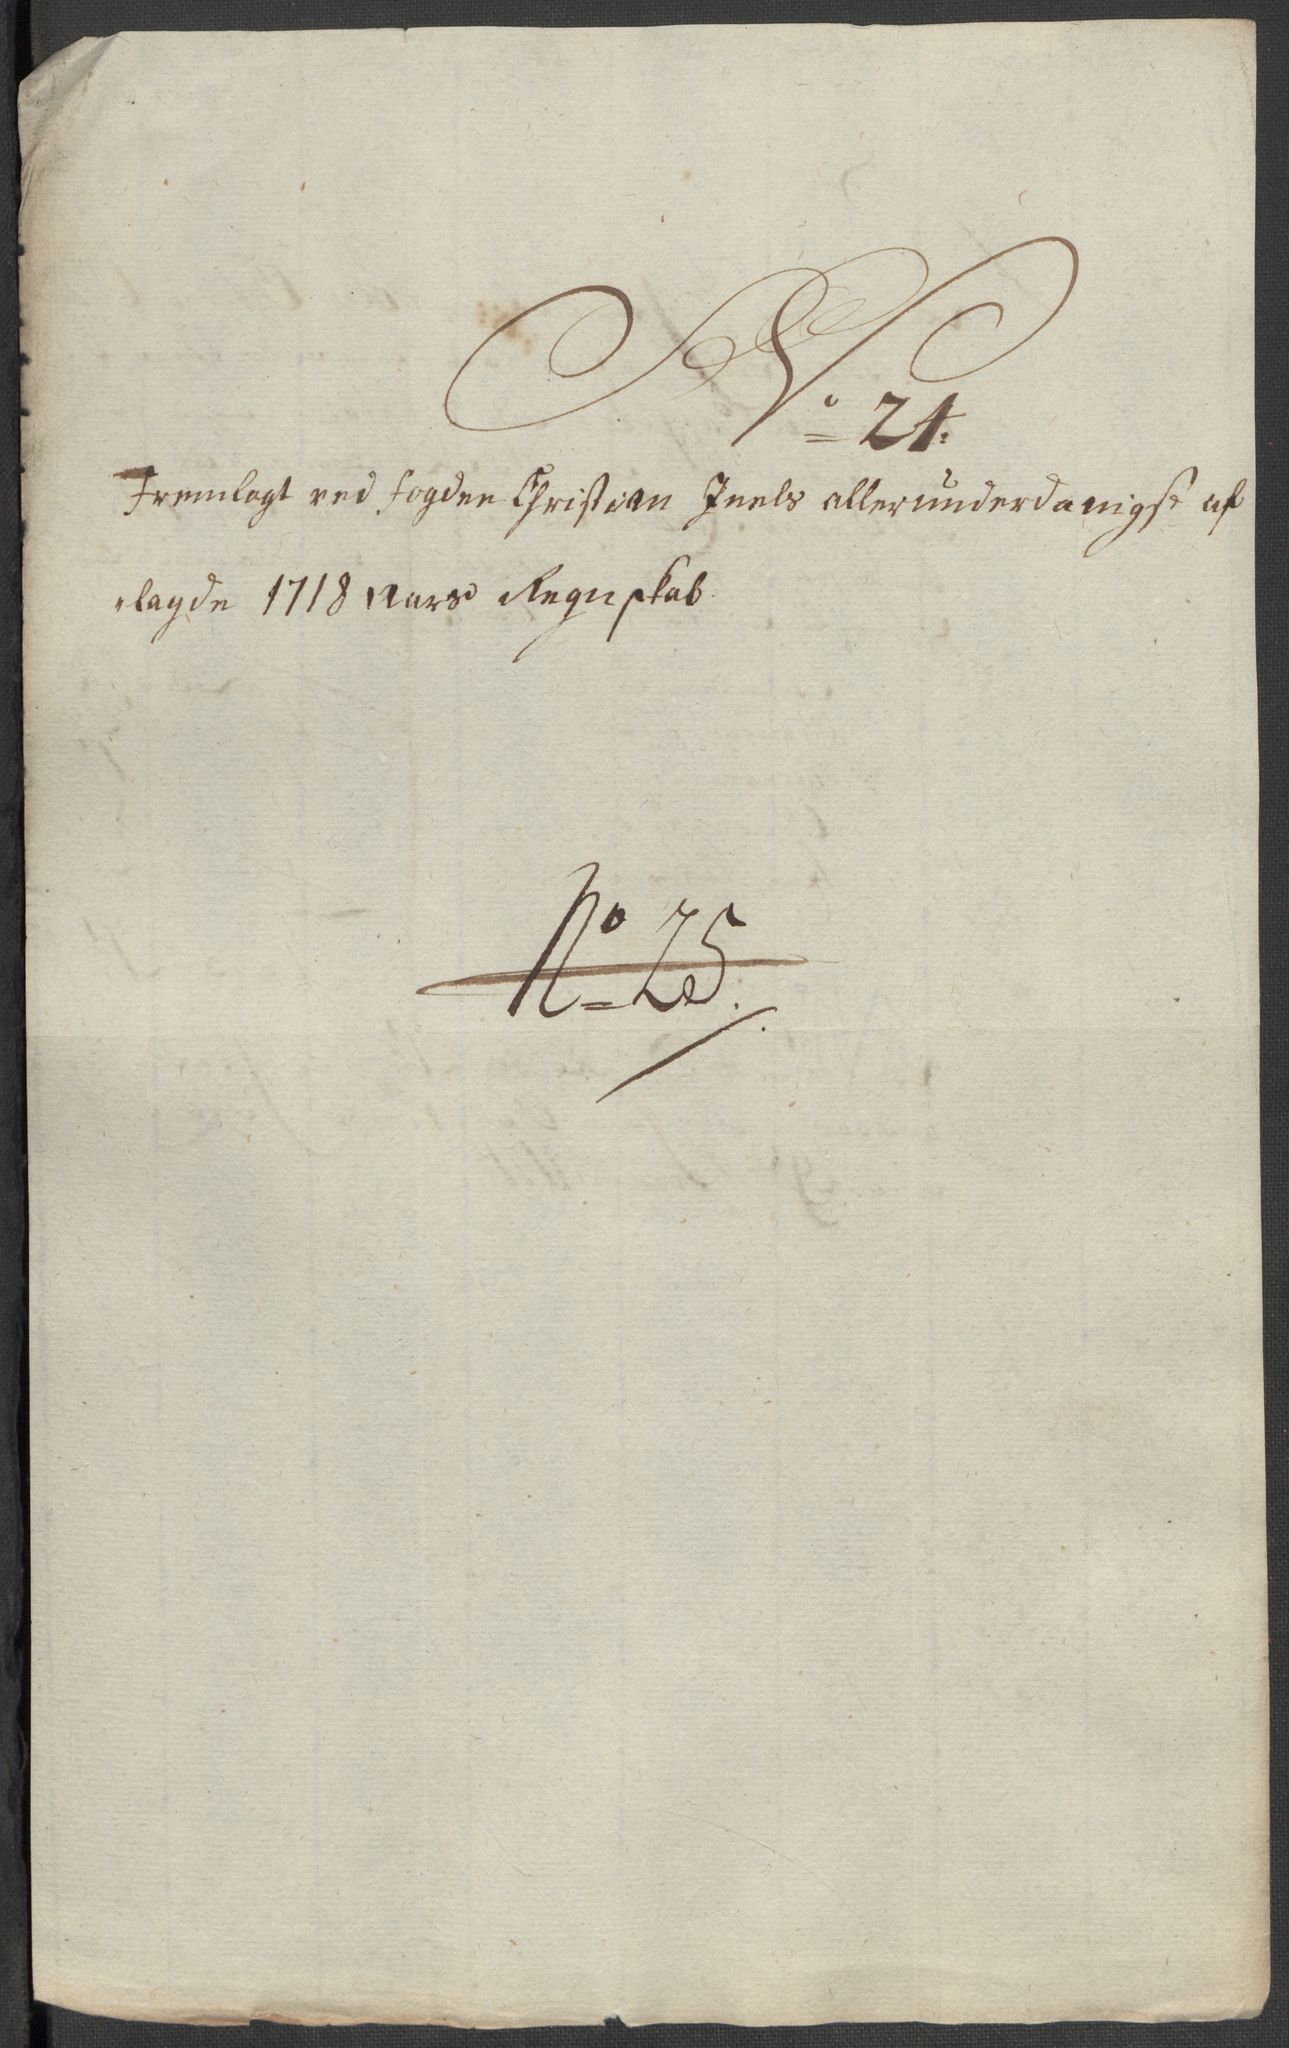 No 24.
Fremlagt ved fogden Christian Juels allerunderdanigst af
lagde 1718 Aars Regnskab
No 25.